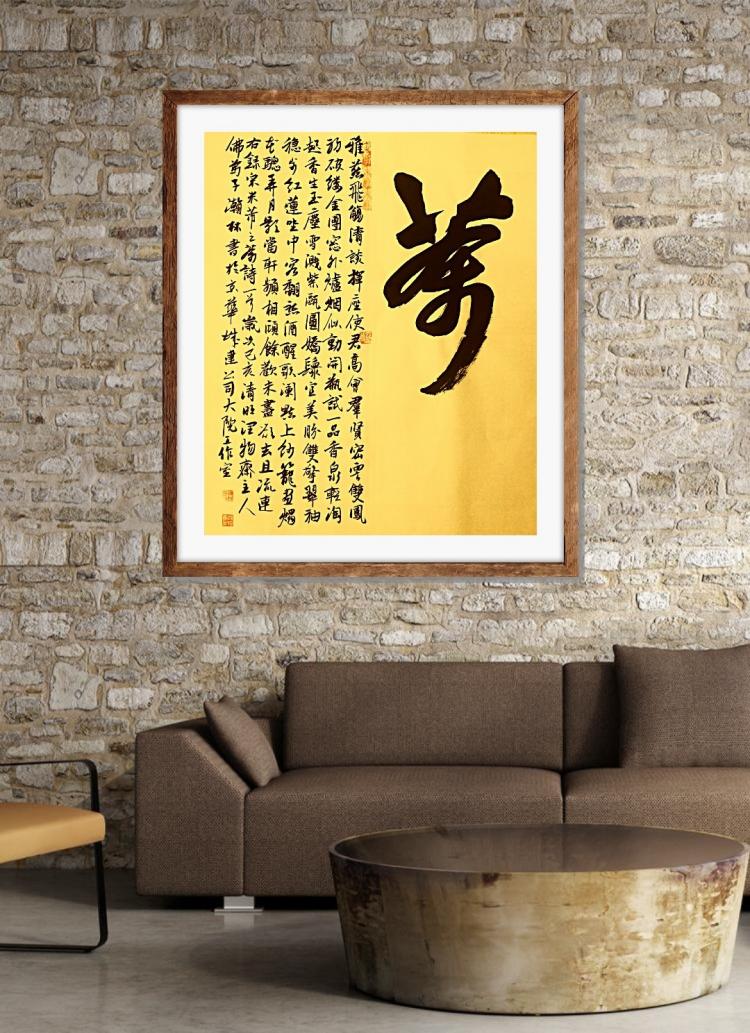 茶
雅燕飛觴清談揮麈使君高會羣賢密雲雙鳳
初破縷金團窓外爐烟似動開瓶試一品香泉輕淘
起香生玉塵雪濺紫甌圓嬌鬟宜美盼雙擎翠袖
穩步紅蓮坐中客翻愁酒醒歌闌點上紗籠畫燭
花驄弄月影當軒頻相顧餘歡未盡欲去且流連
右錄宋米芾之茶詩一首歲次己亥清物齋主人
佛前子瀚林書於京華珠建公司大院工作室